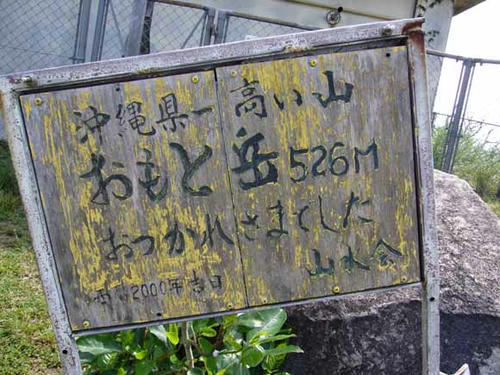 沖縄県一高い山
おもと岳526M
おつかれさまでした
山水会
2000年吉日